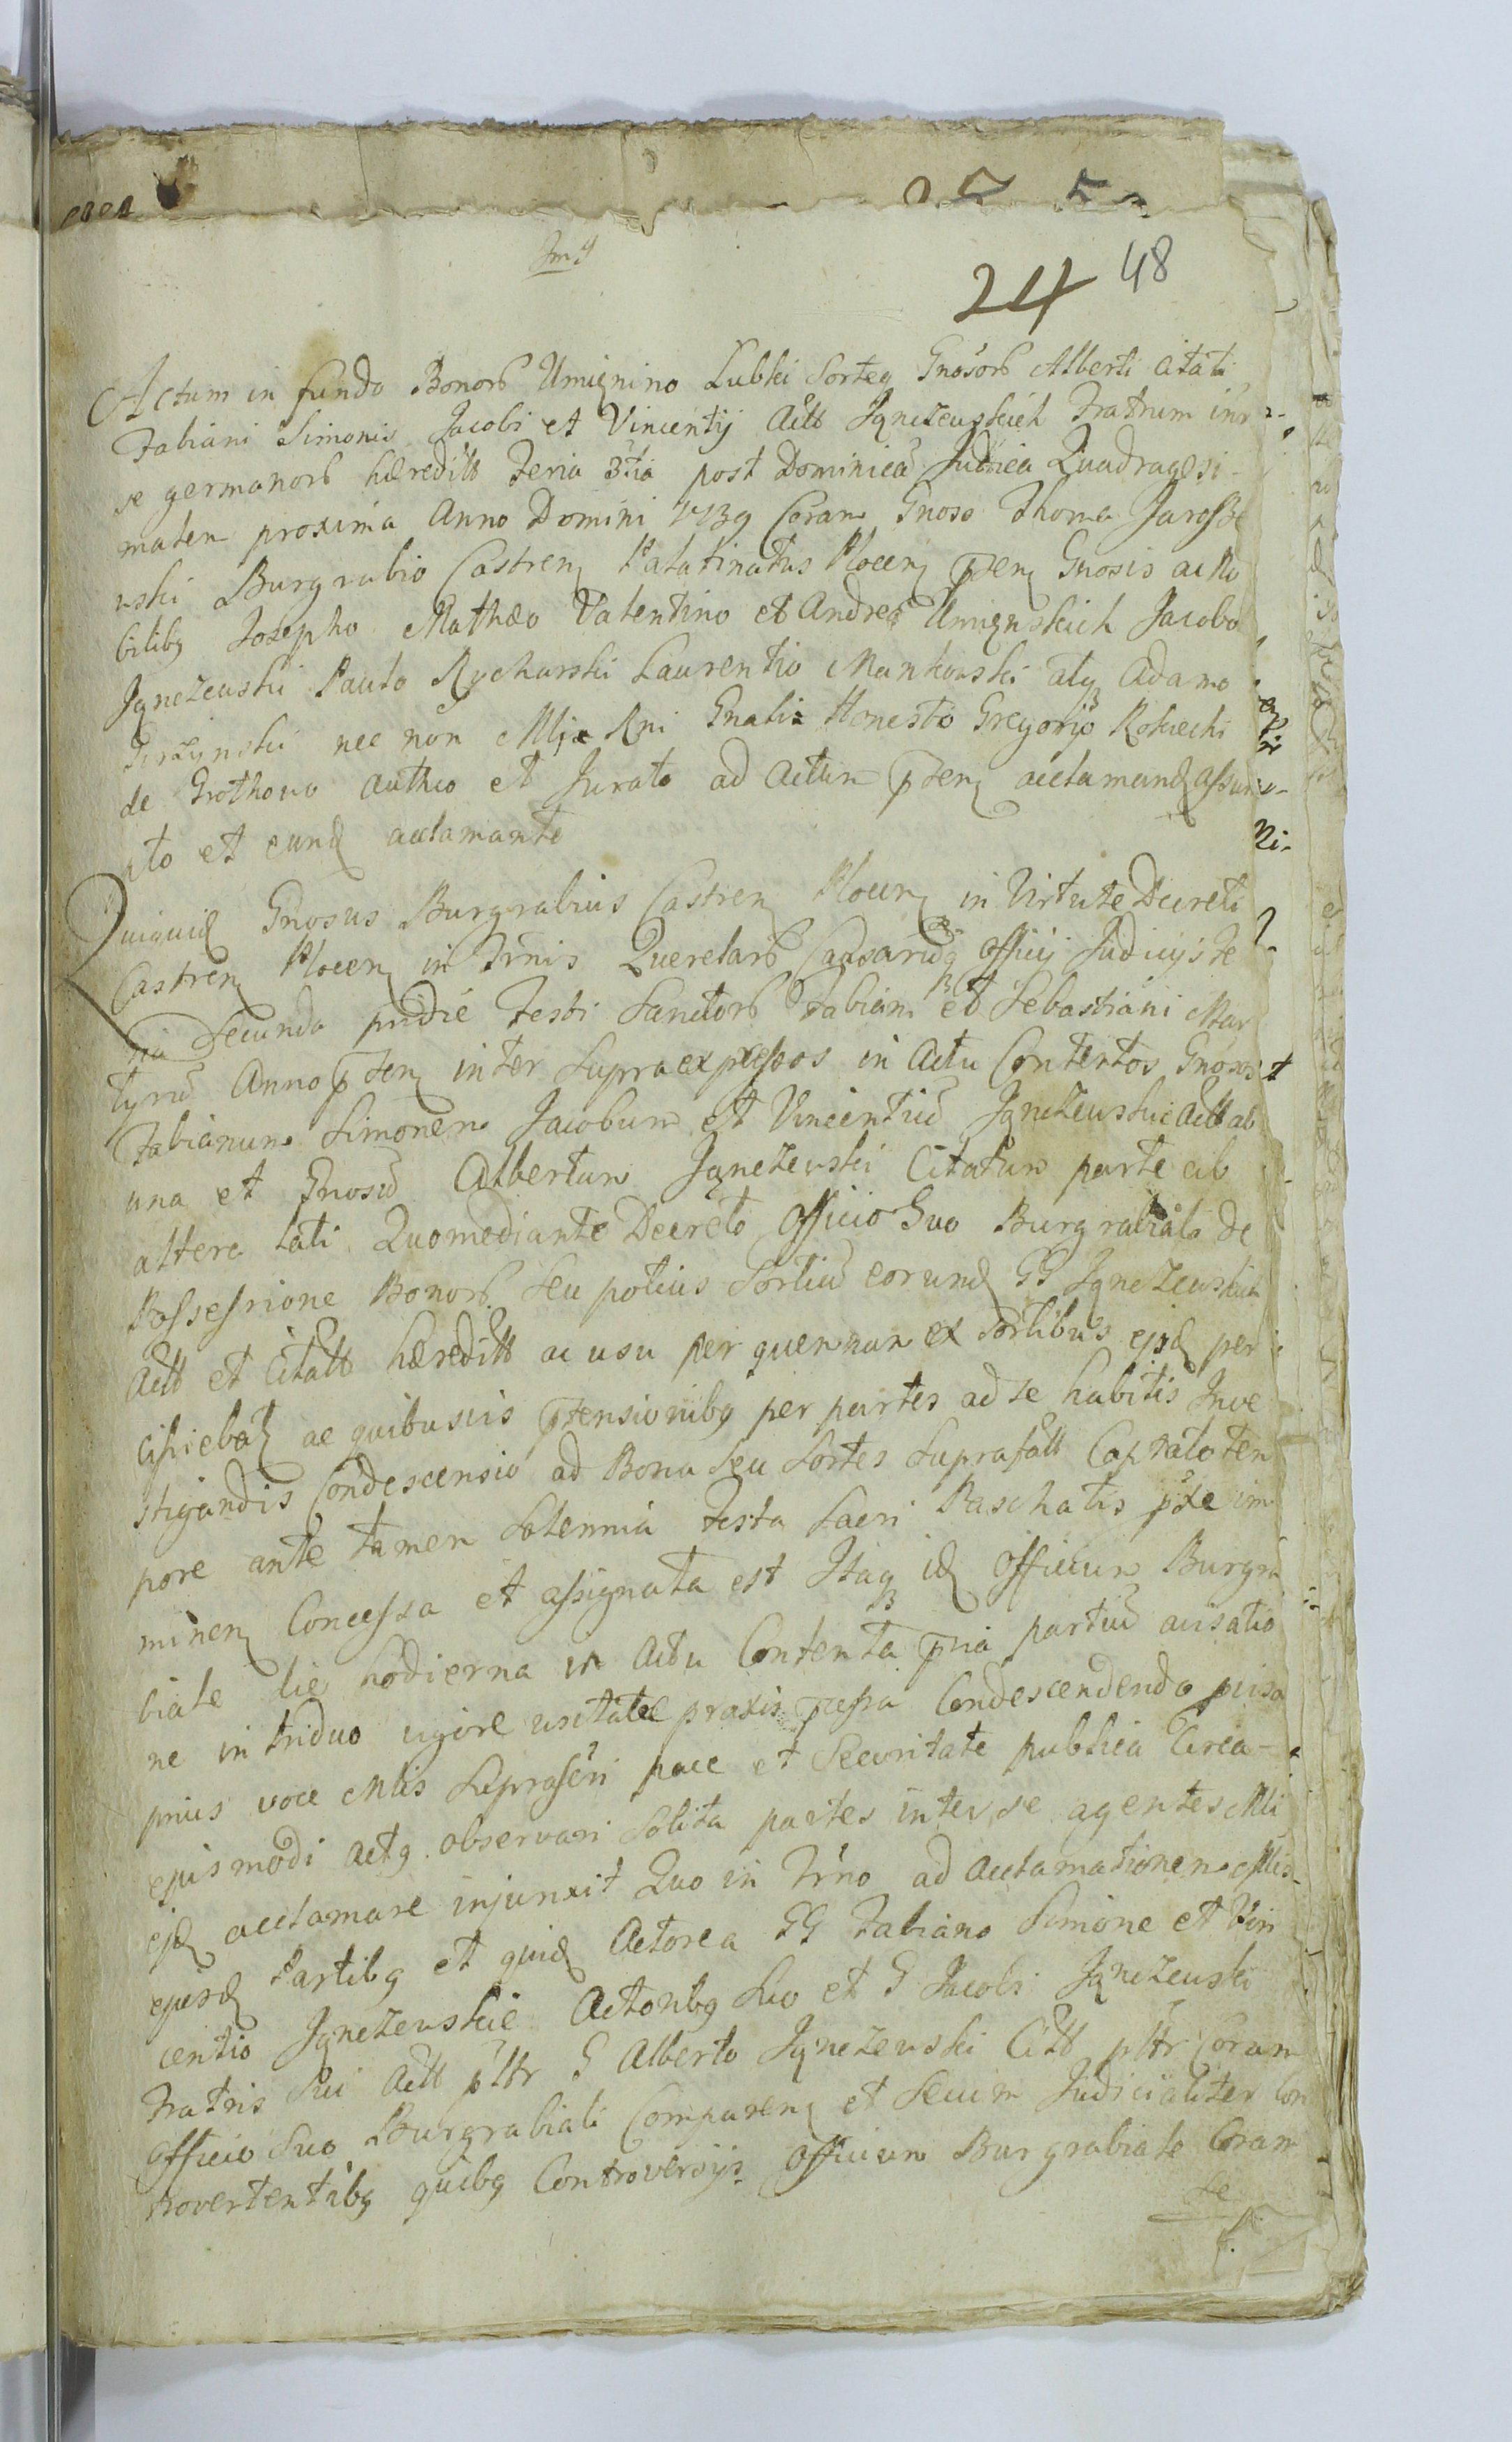 24 48
Actum in fundo Bonorꝝ Umięnino Lubki Sorteꝫ Gnosorꝝ Alberti Citati
Fabiani Simonis Jacobi et Vincentij Actt Jgnezewskich Fratrum intr
se germanorꝝ hæreditt Feria 3tia post Dominicā Judica Quadragesi-
malem proxima Anno Domini 1739 Coram Gnoso Thoma Jarossze
wski Burgrabio Castrenꝫ Palatinatus Plocenꝫ p̄senꝫ Gnosis ac No
bilibꝫ Josepho Mathæo Valentino et Andrea Umięnskich Jacobo
Jgnezewski Paulo Rycharski Laurentio Mankowski atꝫ Adamo
Jerzynski nec non Mlj Rni Gnali Honesto Gregorÿo Rokicki
de Grothowo Authco et Jurato ad Actum p̄senꝫ acclamandꝫ assum
pto et eundꝫ acclamante
Quiquidꝫ Gnosus Burgrabius Castrenꝫ Plocenꝫ in Virtute Decreti
Castrenꝫ Plocenꝫ in Trnis Querelarꝝ Causarūꝫ Officij Judicijs Fe
ria Secunda pridie Festi Sanctorꝝ Fabiani et Sebastiani Mar
tyrū Anno p̄senꝫ inter Supraexpressos in Actu Contentos Gnosos
Fabianum Simonem Jacobum et Vincentiū Jgnezewskie Actt ab
una et Gnosū Albertum Jgnezewski Citatum parte ab
altera lati Quo mediante Decreto Officio Suo Burgrabiali de
Possessione Bonorꝝ Seu potius Sortiū eorundꝫ GG Jgnezewskich
Actt et Citatt hæreditt ac usu per quemnam ex Sortibus ejsdꝫ per
cipiebatꝫ ac quibusvis p̄tensionibꝫ per partes ad se habitis Inve
stigandis Condescensio ad Bona Seu Sortes Suprafatt Captato tem
pore ante tamen Solennia Festa Sacri Paschatis p̄te im
minenꝫ Concessa et assignata est Itaqꝫ idꝫ Officium Burgra
biale die hodierna in Actu Contenta p̄via partiū avisatio
ne in triduo vigore usitatæ praxis p̄cessa Condescendendo pviso
prius voce Mlis Suprascri pace et Securitate publica Circa
ejusmodi Actꝫ observari Solita partes inter se agentes Mli
ejdꝫ acclamare injunxit Quo in Trno ad acclamationem Mlis
ejusdꝫ Partibꝫ et quidꝫ Actorea GG Fabiano Simone et Vin
centio Jgnezewskie Actoribꝫ Suo et G Jacobi Jgnezewski
Fratris Sui Actt pltr G Alberto Jgnezewski Citt pltr Coram
Officio Suo Burgrabiali Comparenꝫ et Secum Judicialiter Con
trovertentibꝫ quibꝫ Controversijs Officium Burgrabiale Coram
Se